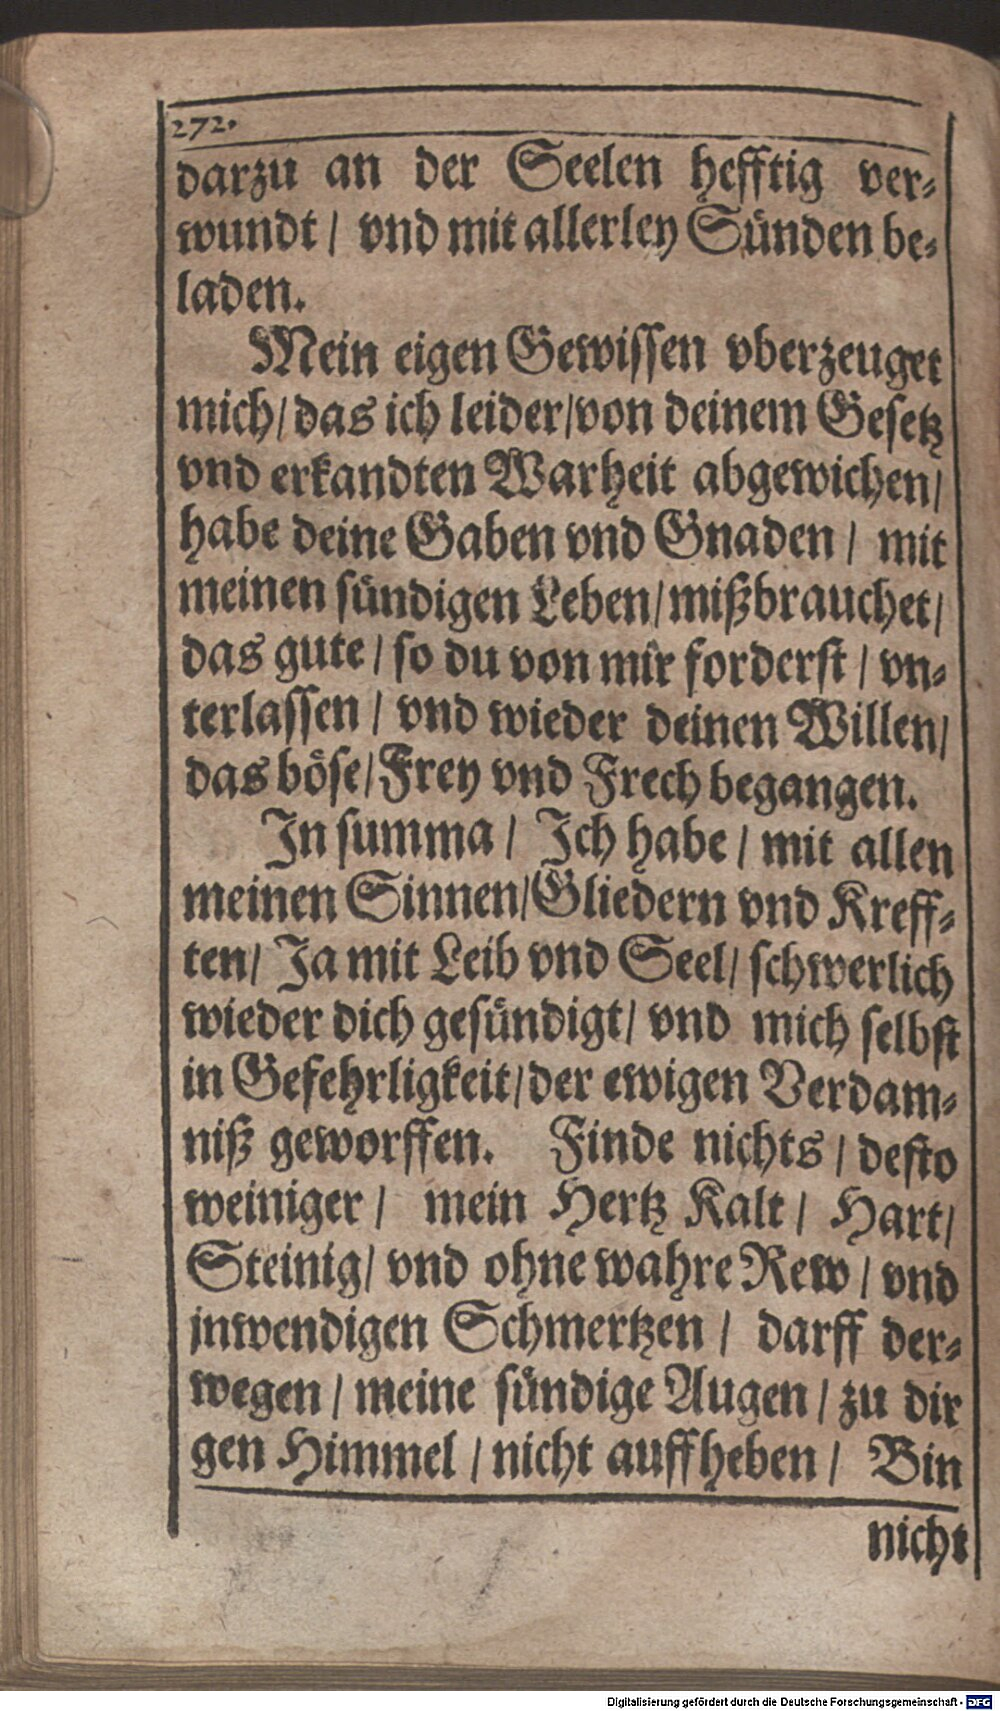 272.
darzu an der Seelen hefftig ver-
wundt / vnd mit allerley Sünden be-
laden.
Mein eigen Gewissen vberzeuget
mich / das ich leider / von deinem Gesetz
vnd erkandten Warheit abgewichen /
habe deine Gaben vnd Gnaden / mit
meinen sündigen Leben / mißbrauchet /
das gute / so du von mir forderst / vn-
terlassen / vnd wieder deinen Willen /
das böse / Frey vnd Frech begangen.
In summa / Ich habe / mit allen
meinen Sinnen / Gliedern vnd Kreff-
ten / Ja mit Leib vnd Seel / schwerlich
wieder dich gesündigt / vnd mich selbst
in Gefehrligkeit / der ewigen Verdam-
niß geworffen. Finde nichts / desto
weiniger / mein Hertz Kalt / Hart /
Steinig / vnd ohne wahre Rew / vnd
inwendigen Schmertzen / darff der-
wegen / meine sündige Augen / zu dir
gen Himmel / nicht auffheben / Bin
nicht
Digitalisierung gefördert durch die Deutsche Forschungsgemeinschaft - DFG